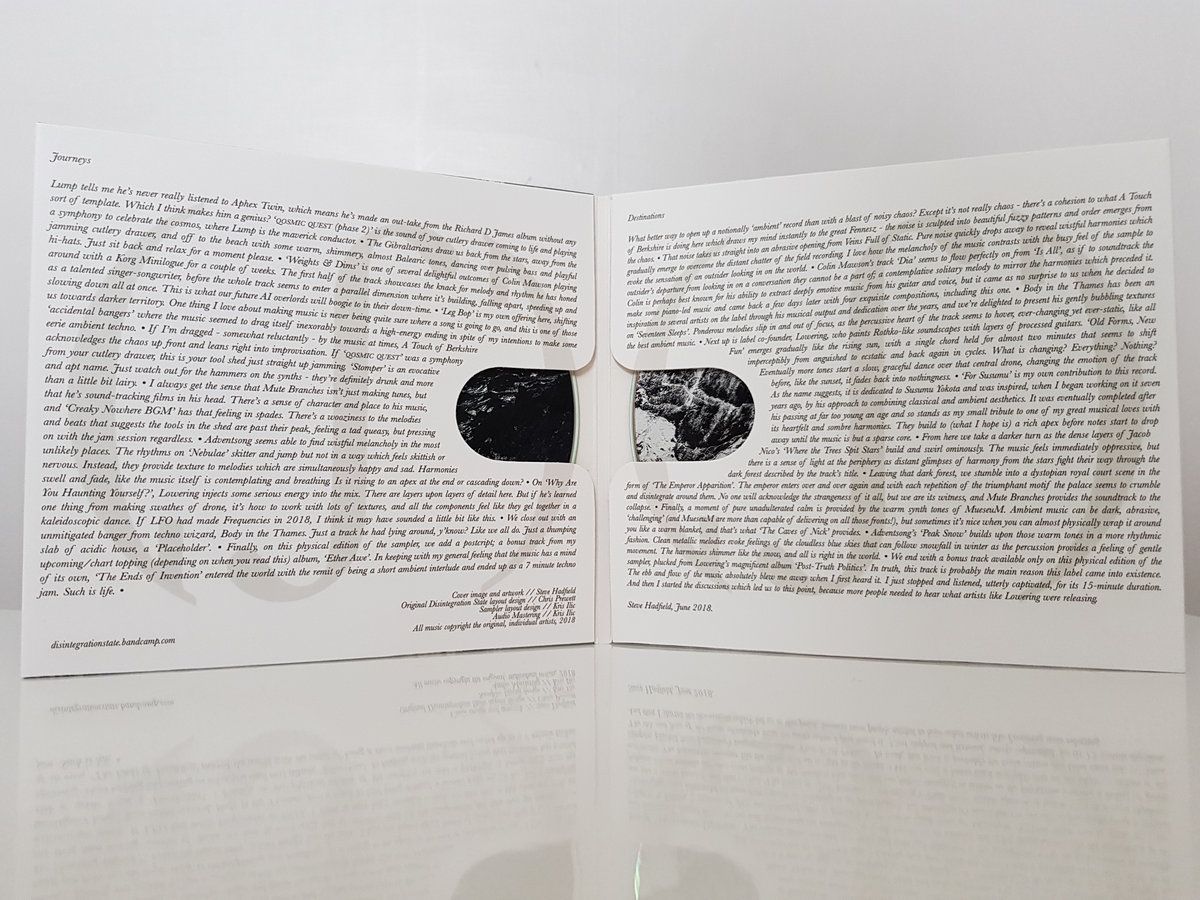 Journeys
Lump tells me he's never really listened to Aphex Twin, which means he's made an out-take from the Richard D James album without any
sort of template. Which I think makes him a genius? 'QOSMIC QUEST (phase 2)' is the sound of your cutlery drawer coming to life and playing
a symphony to celebrate the cosmos, where Lump is the maverick conductor. • The Gibraltarians draw us back from the stars, away from the
jamming cutlery drawer, and off to the beach with some warm, shimmery, almost Balearic tones, dancing over pulsing bass and playful
hi-hats. Just sit back and relax for a moment please. • 'Weights & Dims' is one of several delightful outcomes of Colin Mawson playing
around with a Korg Minilogue for a couple of weeks. The first half of the track showcases the knack for melody and rhythm he has honed
as a talented singer-songwriter, before the whole track seems to enter a parallel dimension where it's building, falling apart, speeding up and
slowing down all at once. This is what our future AI overlords will boogie to in their down-time. • 'Leg Bop' is my own offering here, shifting
us towards darker territory. One thing I love about making music is never being quite sure where a song is going to go, and this is one of those
'accidental bangers' where the music seemed to drag itself inexorably towards a high-energy ending in spite of my intentions to make some
eerie ambient techno. • If I'm dragged - somewhat reluctantly - by the music at times, A Touch of Berkshire
acknowledges the chaos up front and leans right into improvisation. If 'QOSMIC QUEST' was a symphony
from your cutlery drawer, this is your tool shed just straight up jamming. 'Stomper' is an evocative
and apt name. Just watch out for the hammers on the synths - they're definitely drunk and more
than a little bit lairy. • I always get the sense that Mute Branches isn't just making tunes, but
that he's sound-tracking films in his head. There's a sense of character and place to his music,
and 'Creaky Nowhere BGM' has that feeling in spades. There's a wooziness to the melodies
and beats that suggests the tools in the shed are past their peak, feeling a tad queasy, but pressing
on with the jam session regardless. • Adventsong seems able to find wistful melancholy in the most
unlikely places. The rhythms on 'Nebulae' skitter and jump but not in a way which feels skittish or
nervous. Instead, they provide texture to melodies which are simultaneously happy and sad. Harmonies
swell and fade, like the music itself is contemplating and breathing. Is it rising to an apex at the end or cascading down? • On 'Why Are
You Haunting Yourself?', Lowering injects some serious energy into the mix. There are layers upon layers of detail here. But if he's learned
one thing from making swathes of drone, it's how to work with lots of textures, and all the components feel like they gel together in a
kaleidoscopic dance. If LFO had made Frequencies in 2018, I think it may have sounded a little bit like this. • We close out with an
unmitigated banger from techno wizard, Body in the Thames. Just a track he had lying around, y'know? Like we all do. Just a thumping
slab of acidic house, a 'Placeholder'. • Finally, on this physical edition of the sampler, we add a postscript; a bonus track from my
upcoming/chart topping (depending on when you read this) album, 'Ether Awe'. In keeping with my general feeling that the music has a mind
of its own, 'The Ends of Invention' entered the world with the remit of being a short ambient interlude and ended up as a 7 minute techno
jam. Such is life. •
Cover image and artwork // Steve Hadfield
Original Disintegration State layout design // Chris Prewett
Sampler layout design // Kris Ilic
Audio Mastering // Kris Ilic
All music copyright the original, individual artists, 2018
disintegrationstate.bandcamp.com
Destinations
What better way to open up a notionally 'ambient' record than with a blast of noisy chaos? Except it's not really chaos - there's a cohesion to what A Touch
of Berkshire is doing here which draws my mind instantly to the great Fennesz - the noise is sculpted into beautiful fuzzy patterns and order emerges from
the chaos. • That noise takes us straight into an abrasive opening from Veins Full of Static. Pure noise quickly drops away to reveal wistful harmonies which
gradually emerge to overcome the distant chatter of the field recording. I love how the melancholy of the music contrasts with the busy feel of the sample to
evoke the sensation of an outsider looking in on the world. • Colin Mawson's track 'Dia' seems to flow perfectly on from 'Is All', as if to soundtrack the
outsider's departure from looking in on a conversation they cannot be a part of; a contemplative solitary melody to mirror the harmonies which preceded it.
Colin is perhaps best known for his ability to extract deeply emotive music from his guitar and voice, but it came as no surprise to us when he decided to
make some piano-led music and came back a few days later with four exquisite compositions, including this one. • Body in the Thames has been an
inspiration to several artists on the label through his musical output and dedication over the years, and we're delighted to present his gently bubbling textures
on 'Seventeen Sleeps'. Ponderous melodies slip in and out of focus, as the percussive heart of the track seems to hover, ever-changing yet ever-static, like all
the best ambient music. • Next up is label co-founder, Lowering, who paints Rothko-like soundscapes with layers of processed guitars. 'Old Forms, New
Fun' emerges gradually like the rising sun, with a single chord held for almost two minutes that seems to shift
imperceptibly from anguished to ecstatic and back again in cycles. What is changing? Everything? Nothing?
Eventually more tones start a slow, graceful dance over that central drone, changing the emotion of the track
before, like the sunset, it fades back into nothingness. • 'For Susumu' is my own contribution to this record.
As the name suggests, it is dedicated to Susumu Yokota and was inspired, when I began working on it seven
years ago, by his approach to combining classical and ambient aesthetics. It was eventually completed after
his passing at far too young an age and so stands as my small tribute to one of my great musical loves with
its heartfelt and sombre harmonies. They build to (what I hope is) a rich apex before notes start to drop
away until the music is but a sparse core. • From here we take a darker turn as the dense layers of Jacob
Nico's 'Where the Trees Spit Stars' build and swirl ominously. The music feels immediately oppressive, but
there is a sense of light at the periphery as distant glimpses of harmony from the stars fight their way through the
dark forest described by the track's title. • Leaving that dark forest, we stumble into a dystopian royal court scene in the
form of 'The Emperor Apparition'. The emperor enters over and over again and with each repetition of the triumphant motif the palace seems to crumble
and disintegrate around them. No one will acknowledge the strangeness of it all, but we are its witness, and Mute Branches provides the soundtrack to the
collapse. • Finally, a moment of pure unadulterated calm is provided by the warm synth tones of MueseuM. Ambient music can be dark, abrasive,
'challenging' (and MueseuM are more than capable of delivering on all those fronts!), but sometimes it's nice when you can almost physically wrap it around
you like a warm blanket, and that's what 'The Caves of Nick' provides. • Adventsong's 'Peak Snow' builds upon those warm tones in a more rhythmic
fashion. Clean metallic melodies evoke feelings of the cloudless blue skies that can follow snowfall in winter as the percussion provides a feeling of gentle
movement. The harmonies shimmer like the snow, and all is right in the world. • We end with a bonus track available only on this physical edition of the
sampler, plucked from Lowering's magnificent album 'Post-Truth Politics'. In truth, this track is probably the main reason this label came into existence.
The ebb and flow of the music absolutely blew me away when I first heard it. I just stopped and listened, utterly captivated, for its 15-minute duration.
And then I started the discussions which led us to this point, because more people needed to hear what artists like Lowering were releasing.
Steve Hadfield, June 2018.